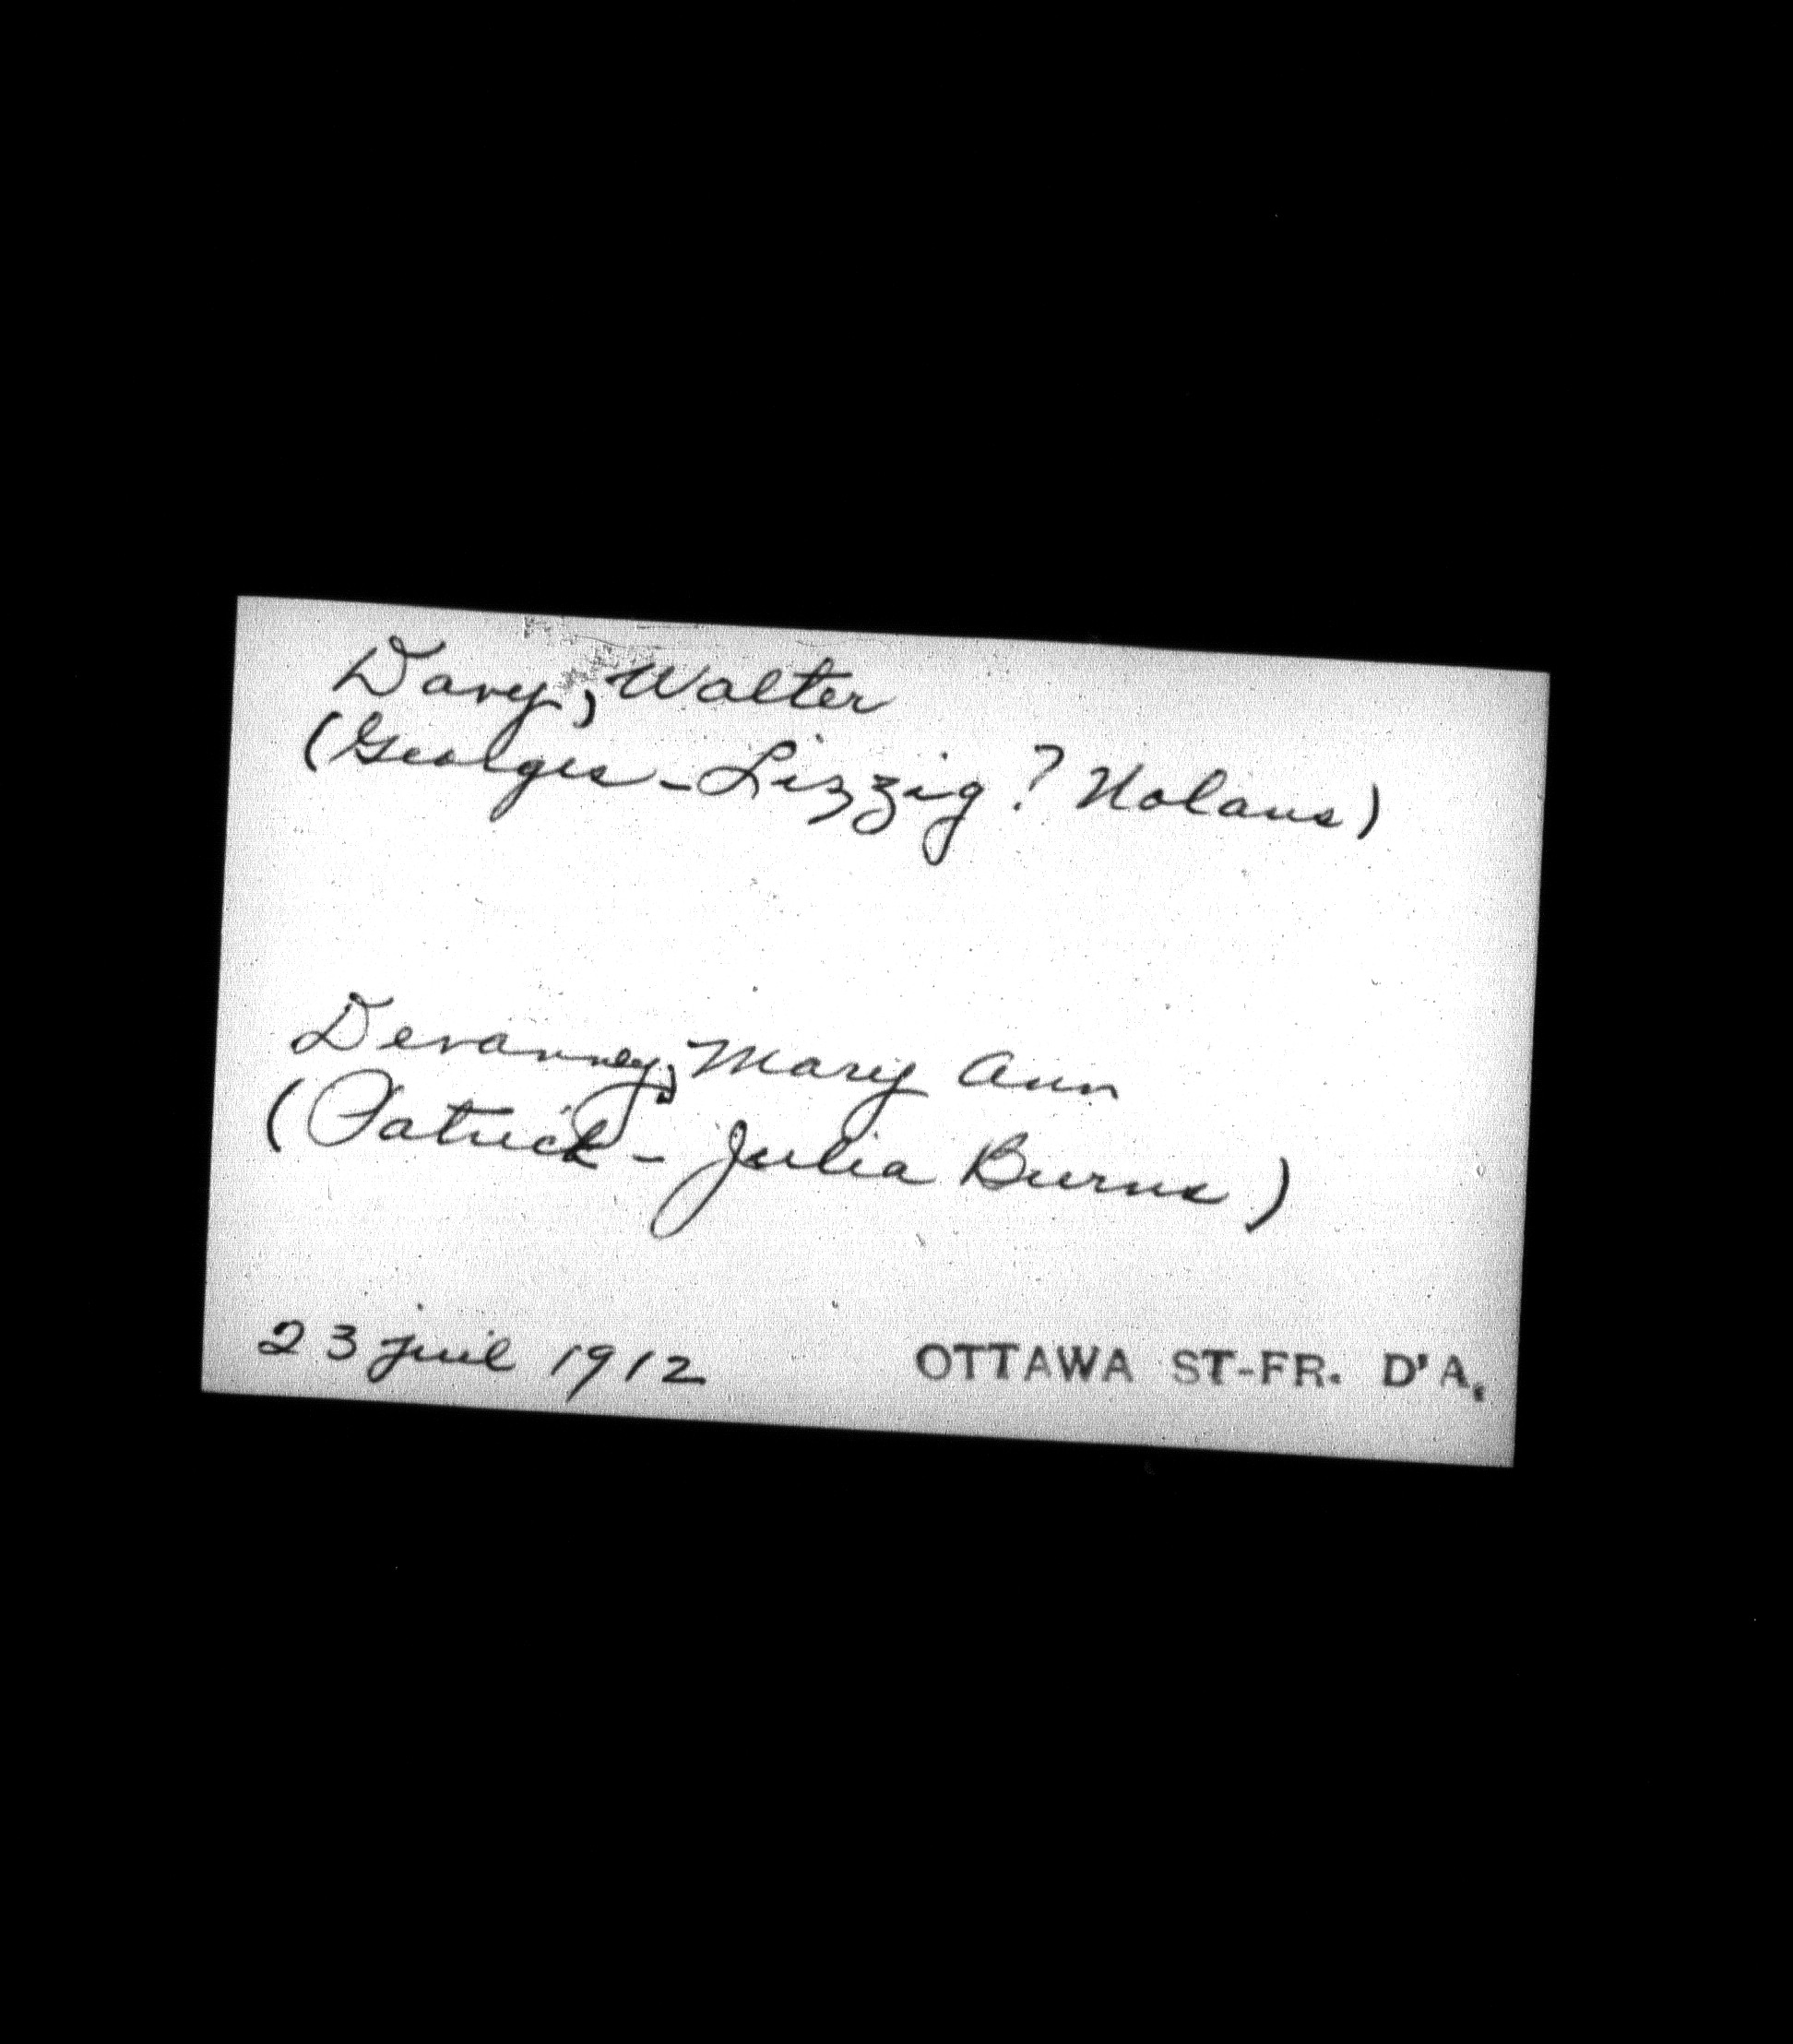 Davy, Walter
(Georges - Lizzig ? Nolans)
Devanney, Mary Ann
(Patrick - Julia Burns)
23 juil 1912 OTTAWA ST-FR. D'A.